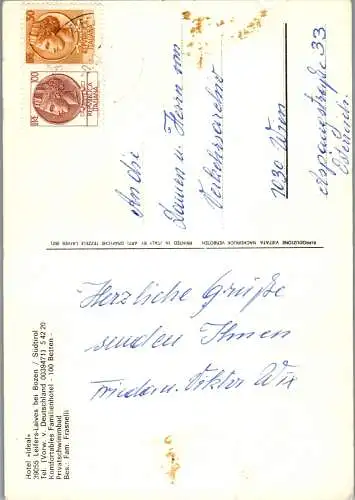 Hotel «Ideal»
39055 Leifers-Laives bei Bozen / Südtirol
Tel. (Vorw. v. Deutschland 0039471) 5 42 20
Komfortables Familienhotel - 100 Betten -
Privatschwimmbad
Bes.: Fam. Frasnelli
Herzliche Grüße
senden Ihnen
Friedom. Viktor Wix
RIPRODUZIONE VIETATA NACHDRUCK VERBOTEN
PRINTED IN ITALY BY ARTI GRAFICHE TEZZELE LAIVES (BZ)
An die
Damen u. Herrn vom
Verkehrsarchiv
1030 Wien
Aspangstraße 33
Österreich
LIRE 50
REPUBBLICA ITALIANA
LIRE 100
REPUBBLICA ITALIANA